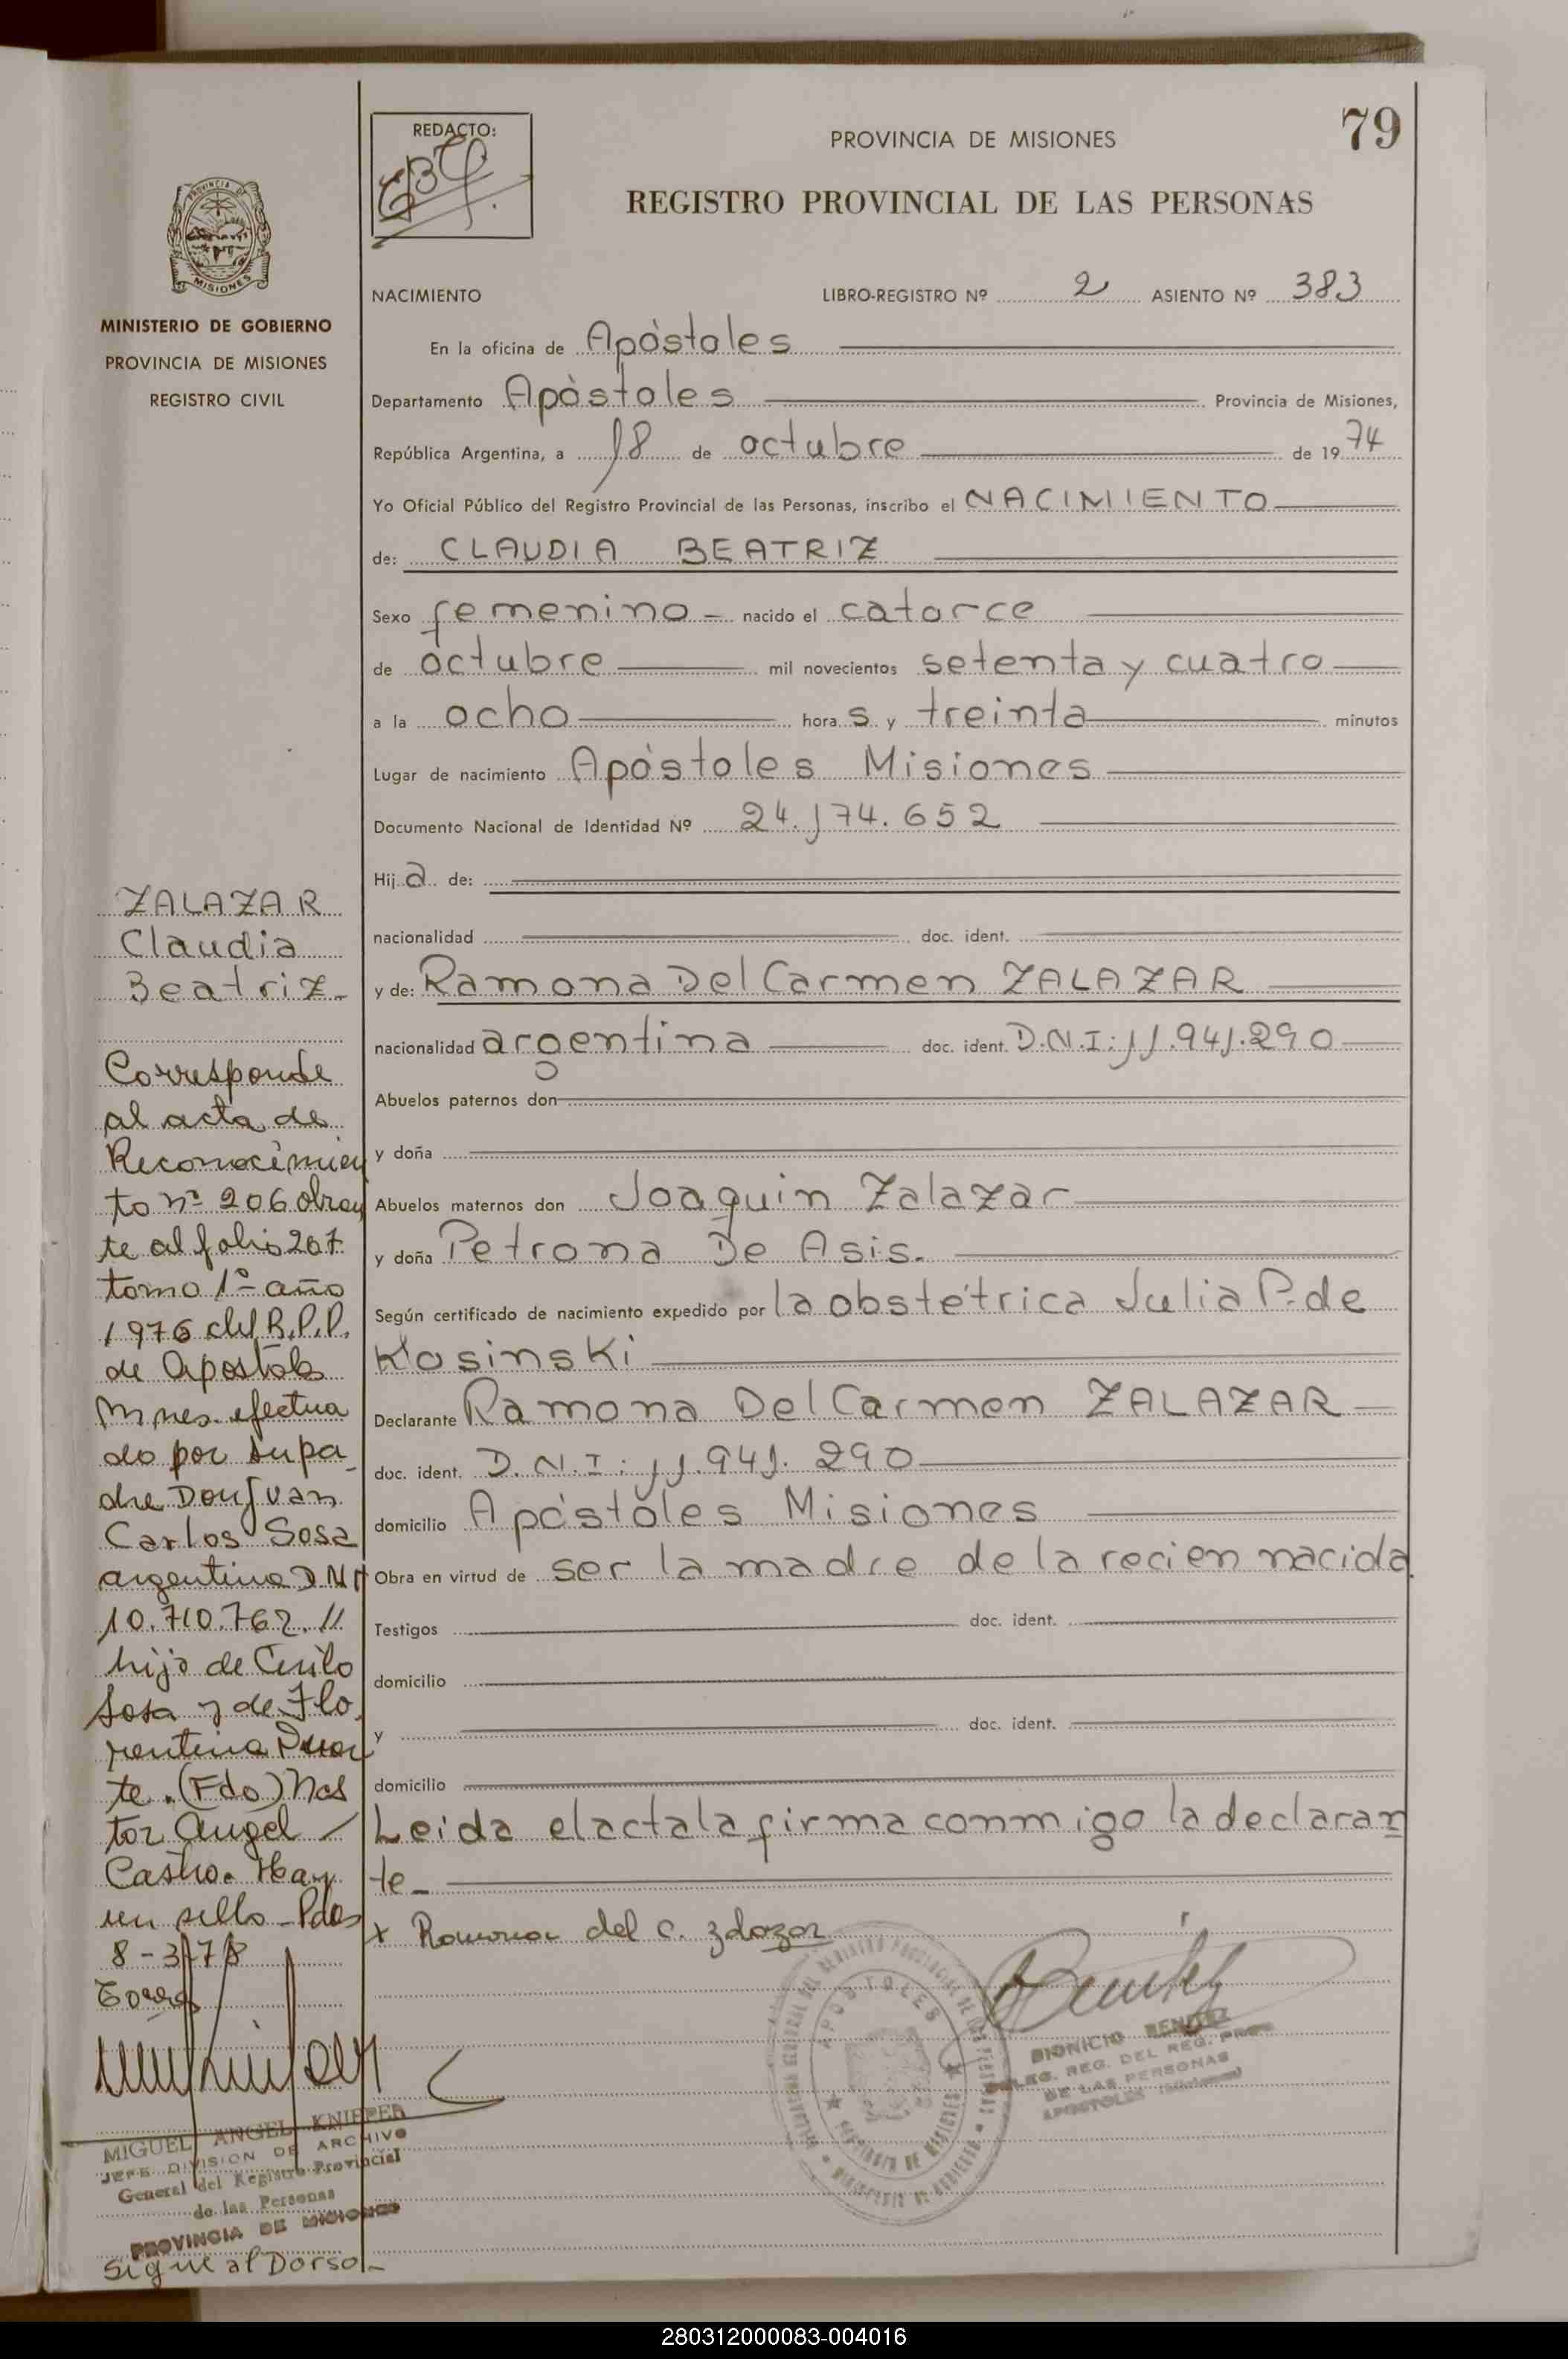 79
REDACTO:
PROVINCIA DE MISIONES
REGISTRO PROVINCIAL DE LAS PERSONAS
PROVINCIA DE
MISIONES
MINISTERIO DE GOBIERNO
PROVINCIA DE MISIONES
REGISTRO CIVIL
NACIMIENTO LIBRO-REGISTRO Nº 2 ASIENTO Nº 383
En la oficina de Apóstoles
Departamento Apóstoles Provincia de Misiones,
República Argentina, a 18 de octubre de 1974
Yo Oficial Público del Registro Provincial de las Personas, inscribo el NACIMIENTO
de: CLAUDIA BEATRIZ
Sexo femenino - nacido el catorce
de octubre mil novecientos setenta y cuatro
a la ocho hora s y treinta minutos
Lugar de nacimiento Apóstoles Misiones
Documento Nacional de Identidad Nº 24.174.652
Hij a de:
nacionalidad doc. ident.
y de: Ramona Del Carmen ZALAZAR
nacionalidad argentina doc. ident. D.N.I: 11.941.290
Abuelos paternos don
y doña
Abuelos maternos don Joaquin Zalazar
y doña Petrona De Asis.
Según certificado de nacimiento expedido por la obstétrica Julia P. de
Kosinski
Declarante Ramona Del Carmen ZALAZAR
doc. ident. D.N.I: 11.941.290
domicilio Apóstoles Misiones
Obra en virtud de ser la madre de la recien nacida.
Testigos doc. ident.
domicilio
y doc. ident.
domicilio
Leida el acta la firma conmigo la declaran
te
x Ramona del C. Zalazar
APOSTOLES
PROVINCIA DE MISIONES
DIONICIO BENITEZ
DELEG. REG. DEL REG. PROV.
DE LAS PERSONAS
APOSTOLES (Misiones)
ZALAZAR
Claudia
Beatriz
Corresponde
al acta de
Reconocimien
to nº 206 obran
te al folio 207
tomo 1º año
1976 del R.P.P.
de Apostoles
Mnes. efectua
do por su pa
dre Don Juan
Carlos Sosa
argentino D.N.I
10.710.762.//
hijo de Cirilo
Sosa y de Flo
rentina Duar
te. (Fdo) Nes
tor Angel
Castro. Hay
un sello - Pdas
8-3-78
MIGUEL ANGEL KNIPPER
JEFE DIVISION DE ARCHIVO
General del Registro Provincial
de las Personas
PROVINCIA DE MISIONES
Sigue al Dorso
280312000083-004016